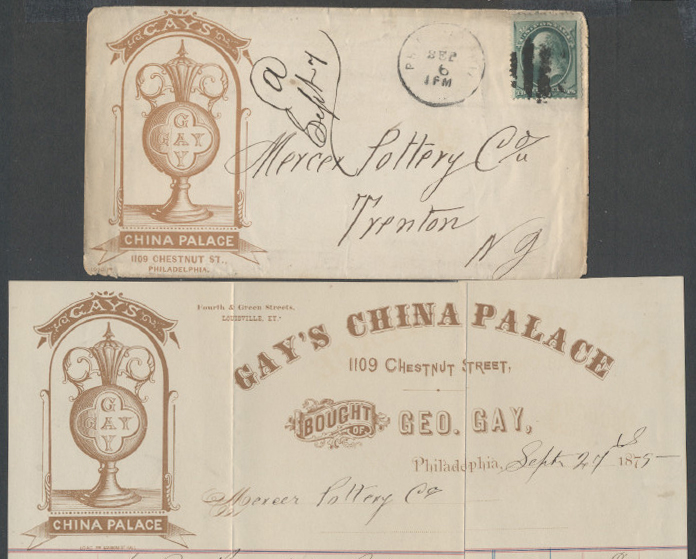 GAY'S
GAY
GAY
CHINA PALACE
1109 CHESTNUT ST.,
PHILADELPHIA.
a
Sept 7
SEP
6
1 PM
Mercer Pottery Co
Trenton
NJ
GAY'S
GAY
GAY
CHINA PALACE
Fourth & Green Streets,
LOUISVILLE, KY.
GAY'S CHINA PALACE
1109 CHESTNUT STREET,
BOUGHT OF GEO. GAY,
Philadelphia, Sept 27 1875
Mercer Pottery Co